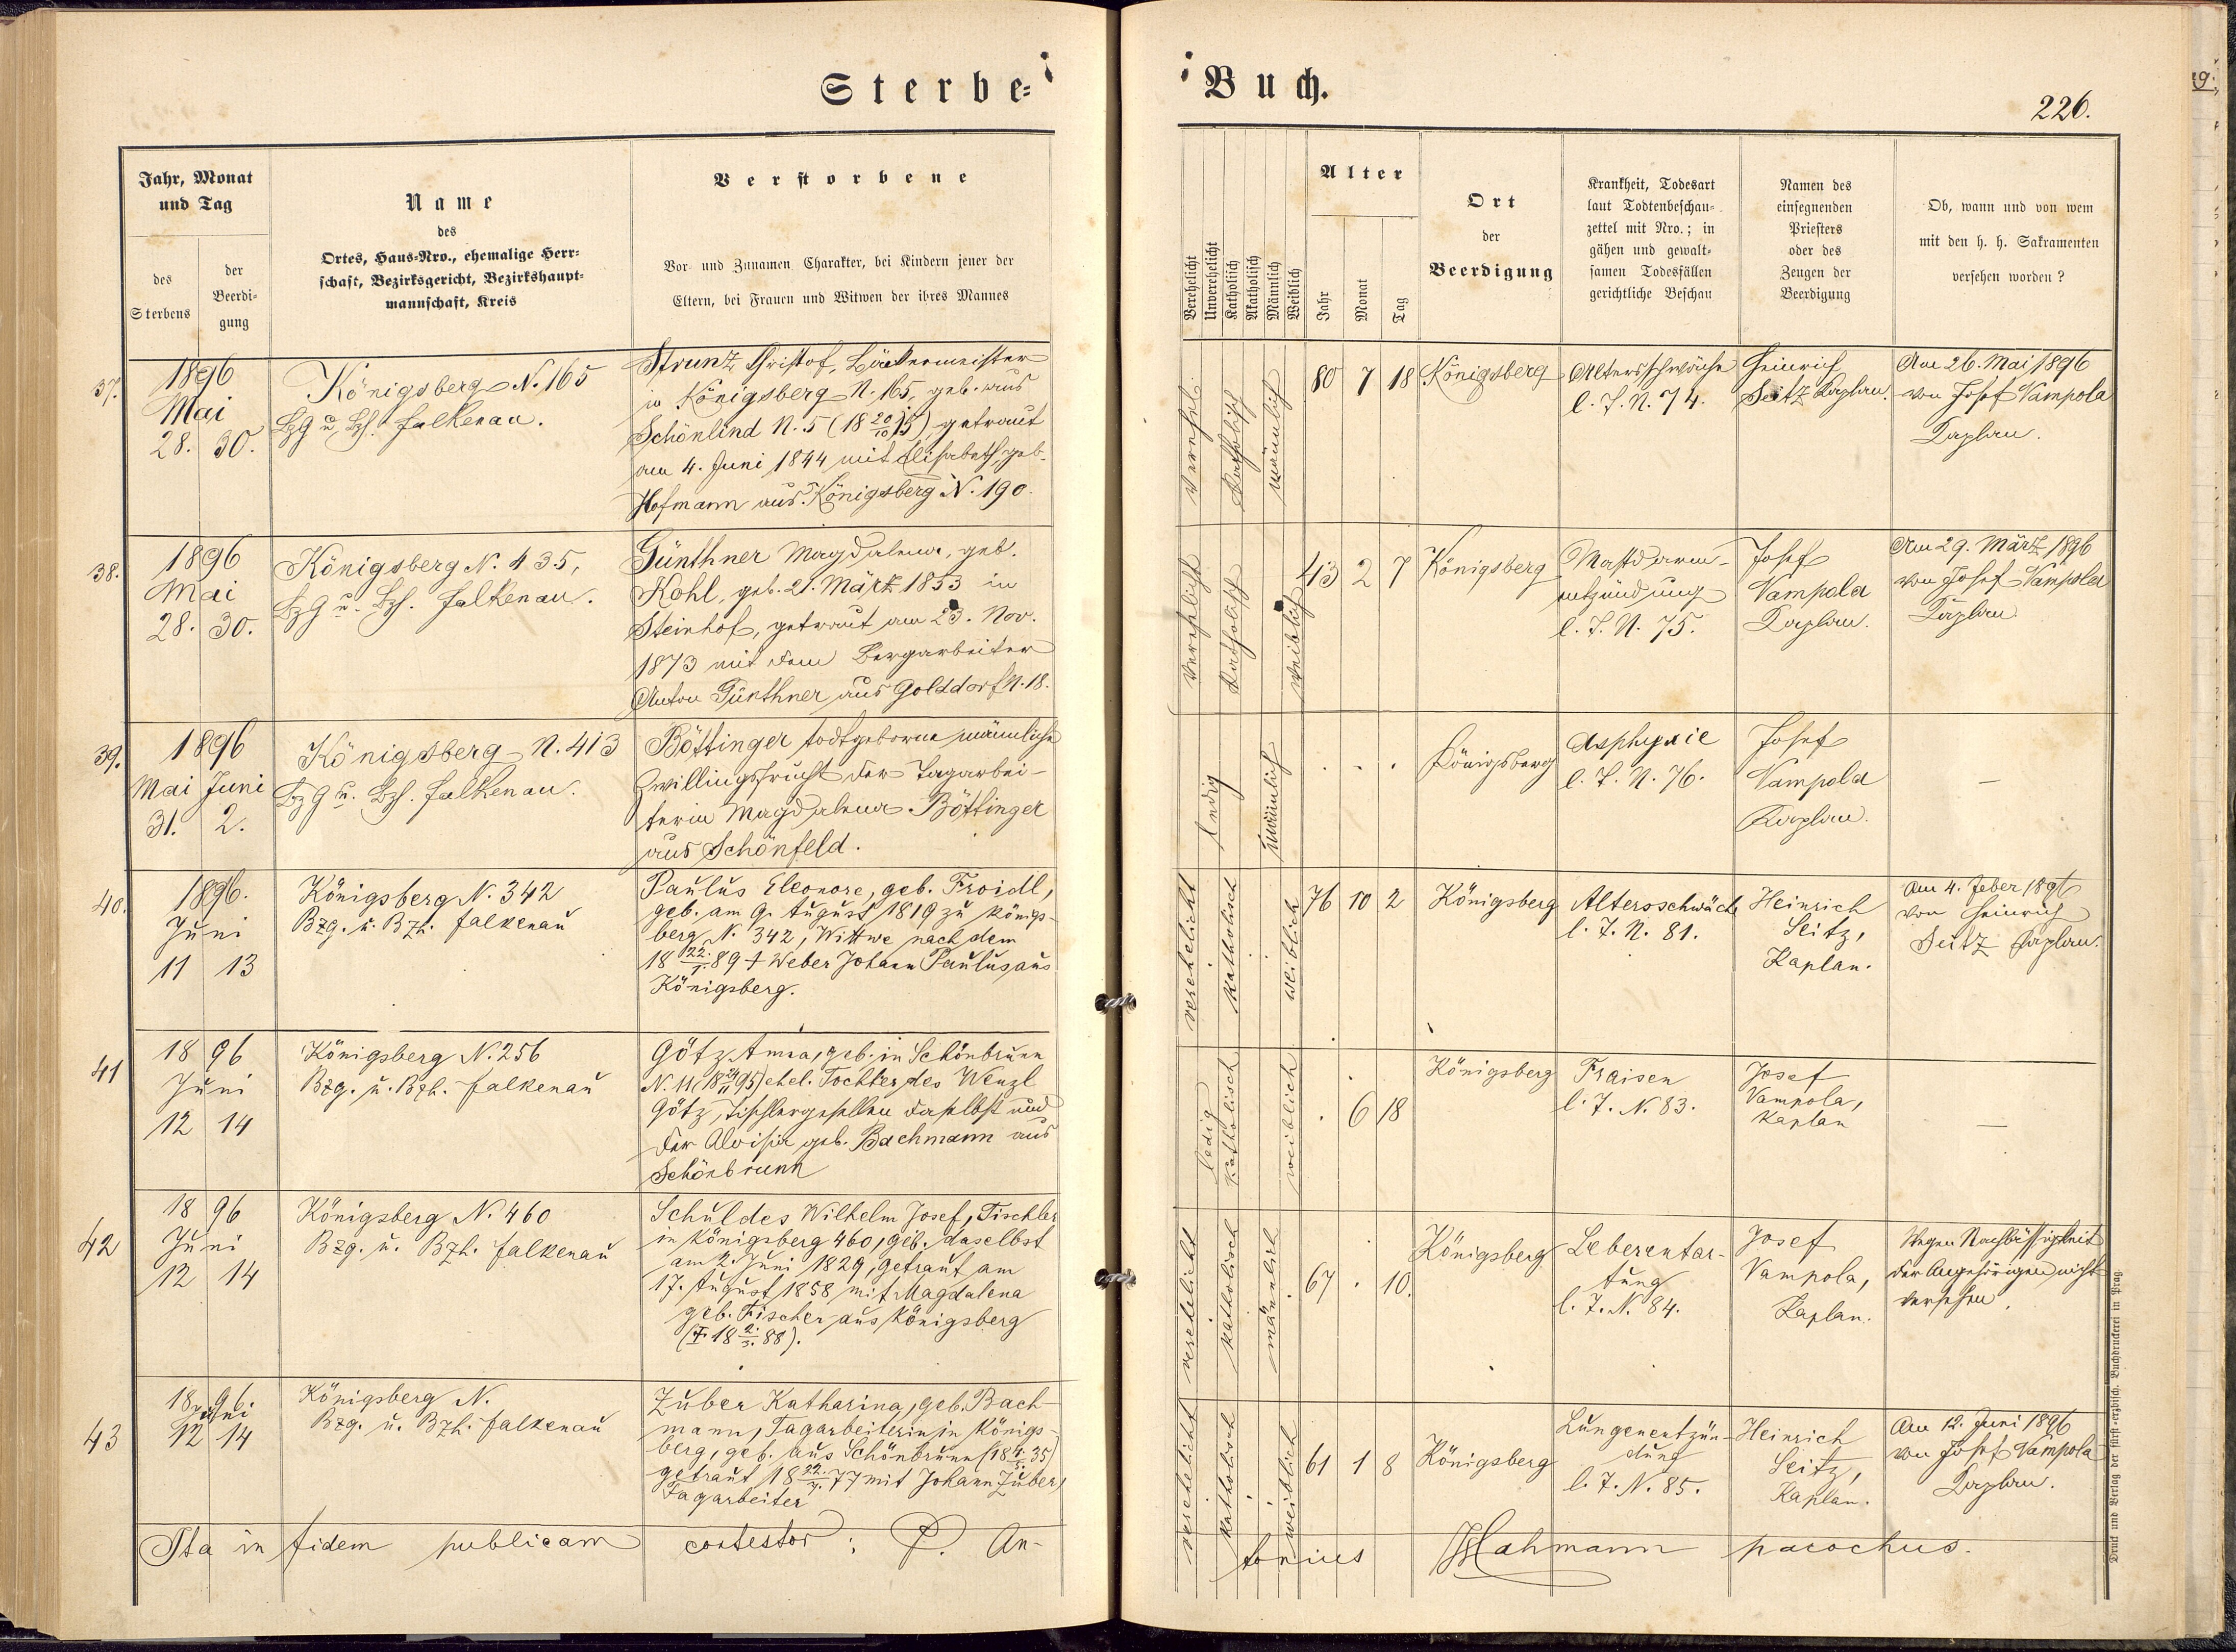 Sterbe-
Buch.
226.
Jahr, Monat
und Tag
des
Sterbens
der
Beerdi-
gung
Name
des
Ortes, Haus-Nro., ehemalige Herr-
schaft, Bezirksgericht, Bezirkshaupt-
mannschaft, Kreis
Verstorbene
Vor- und Zunamen, Charakter, bei Kindern jener der
Eltern, bei Frauen und Witwen der ihres Mannes
Verehelicht
Unverehelicht
Katholisch
Akatholisch
Männlich
Weiblich
Alter
Jahr
Monat
Tag
Ort
der
Beerdigung
Krankheit, Todesart
laut Todtenbeschau-
zettel mit Nro.; in
gähen und gewalt-
samen Todesfällen
gerichtliche Beschau
Namen des
einsegnenden
Priesters
oder des
Zeugen der
Beerdigung
Ob, wann und von wem
mit den h. h. Sakramenten
versehen worden?
37.
1896
Mai
28. 30.
Königsberg N. 165
BzG u. Bzh. Falkenau.
Strunz Christof, Bäckermeister
in Königsberg N. 165, geb. aus
Schönlind N. 5 (18 20/10 15) getraut
am 4. Juni 1844 mit Elisabeth geb.
Hofmann aus Königsberg N. 190.
verehel.
katholisch
männlich
80 7 18
Königsberg
Altersschwäche
l. T. N. 74.
Heinrich
Seitz Kaplan.
Am 26. Mai 1896
von Josef Vampola
Kaplan.
38.
1896
Mai
28. 30.
Königsberg N. 435,
BzG u. Bzh. Falkenau.
Günthner Magdalena, geb.
Kohl, geb. 21. März 1853 in
Steinhof, getraut am 23. Nov.
1873 mit dem Bergarbeiter
Anton Günthner aus Golddorf N. 18.
verehelicht
katholisch
weiblich
43 2 7
Königsberg
Mastdarm-
entzündung
l. T. N. 75.
Josef
Vampola
Kaplan.
Am 29. März 1896
von Josef Vampola
Kaplan
39.
1896
Mai Juni
31. 2.
Königsberg N. 413
BzG u. Bzh. Falkenau.
Böttinger todtgeborne männliche
Zwillingsfrucht der Tagarbei-
terin Magdalena Böttinger
aus Schönfeld.
ledig
männlich
. . .
Königsberg
Asphyxie
l. T. N. 76.
Josef
Vampola
Kaplan.
—
40.
1896.
Juni
11 13
Königsberg N. 342
Bzg. u. Bzh. Falkenau
Paulus Eleonore, geb. Froidl,
geb. am 9. August 1819 zu Königs-
berg N. 342, Wittwe nach dem
18 22./1. 89 † Weber Johann Paulus aus
Königsberg.
verehelicht
katholisch
weiblich
76 10 2
Königsberg
Altersschwäche
l. T. N. 81.
Heinrich
Seitz,
Kaplan.
Am 4. Feber 1896
von Heinrich
Seitz Kaplan.
41
18 96
Juni
12 14
Königsberg N. 256
Bzg. u. Bzh. Falkenau
Götz Anna, geb. in Schönbrunn
N. 11 (18 24/11 95) ehel. Tochter des Wenzl
Götz, Tischlergesellen daselbst und
der Aloisia geb. Bachmann aus
Schönbrunn
ledig
katholisch
weiblich
. 6 18
Königsberg
Fraisen
l. T. N. 83.
Josef
Vampola,
Kaplan
—
42
18 96
Juni
12 14
Königsberg N. 460
Bzg. u. Bzh. Falkenau
Schuldes Wilhelm Josef, Tischler
in Königsberg 460, geb. daselbst
am 2. Juni 1829, getraut am
17. August 1858 mit Magdalena
geb. Fischer aus Königsberg
(† 18 2./3. 88).
verehelicht
katholisch
männlich
67 . 10.
Königsberg
Leberentar-
tung
l. T. N. 84.
Josef
Vampola,
Kaplan.
Wegen Nachlässigkeit
der Angehörigen nicht
versehen.
43
1896.
Juni
12 14
Königsberg N.
Bzg. u. Bzh. Falkenau
Zuber Katharina, geb. Bach-
mann, Tagarbeiterin in Königs-
berg, geb. aus Schönbrunn (18 4./5. 35)
getraut 18 22./7. 77 mit Johann Zuber,
Tagarbeiter
verehelicht
katholisch
weiblich
61 1 8
Königsberg
Lungenentzün-
dung
l. T. N. 85.
Heinrich
Seitz,
Kaplan.
Am 12. Juni 1896
von Josef Vampola
Kaplan.
Ita in fidem publicam contestor: P. An-
tonius Hahmann parochus.
Druck und Verlag der fürst-erzbisch. Buchdruckerei in Prag.